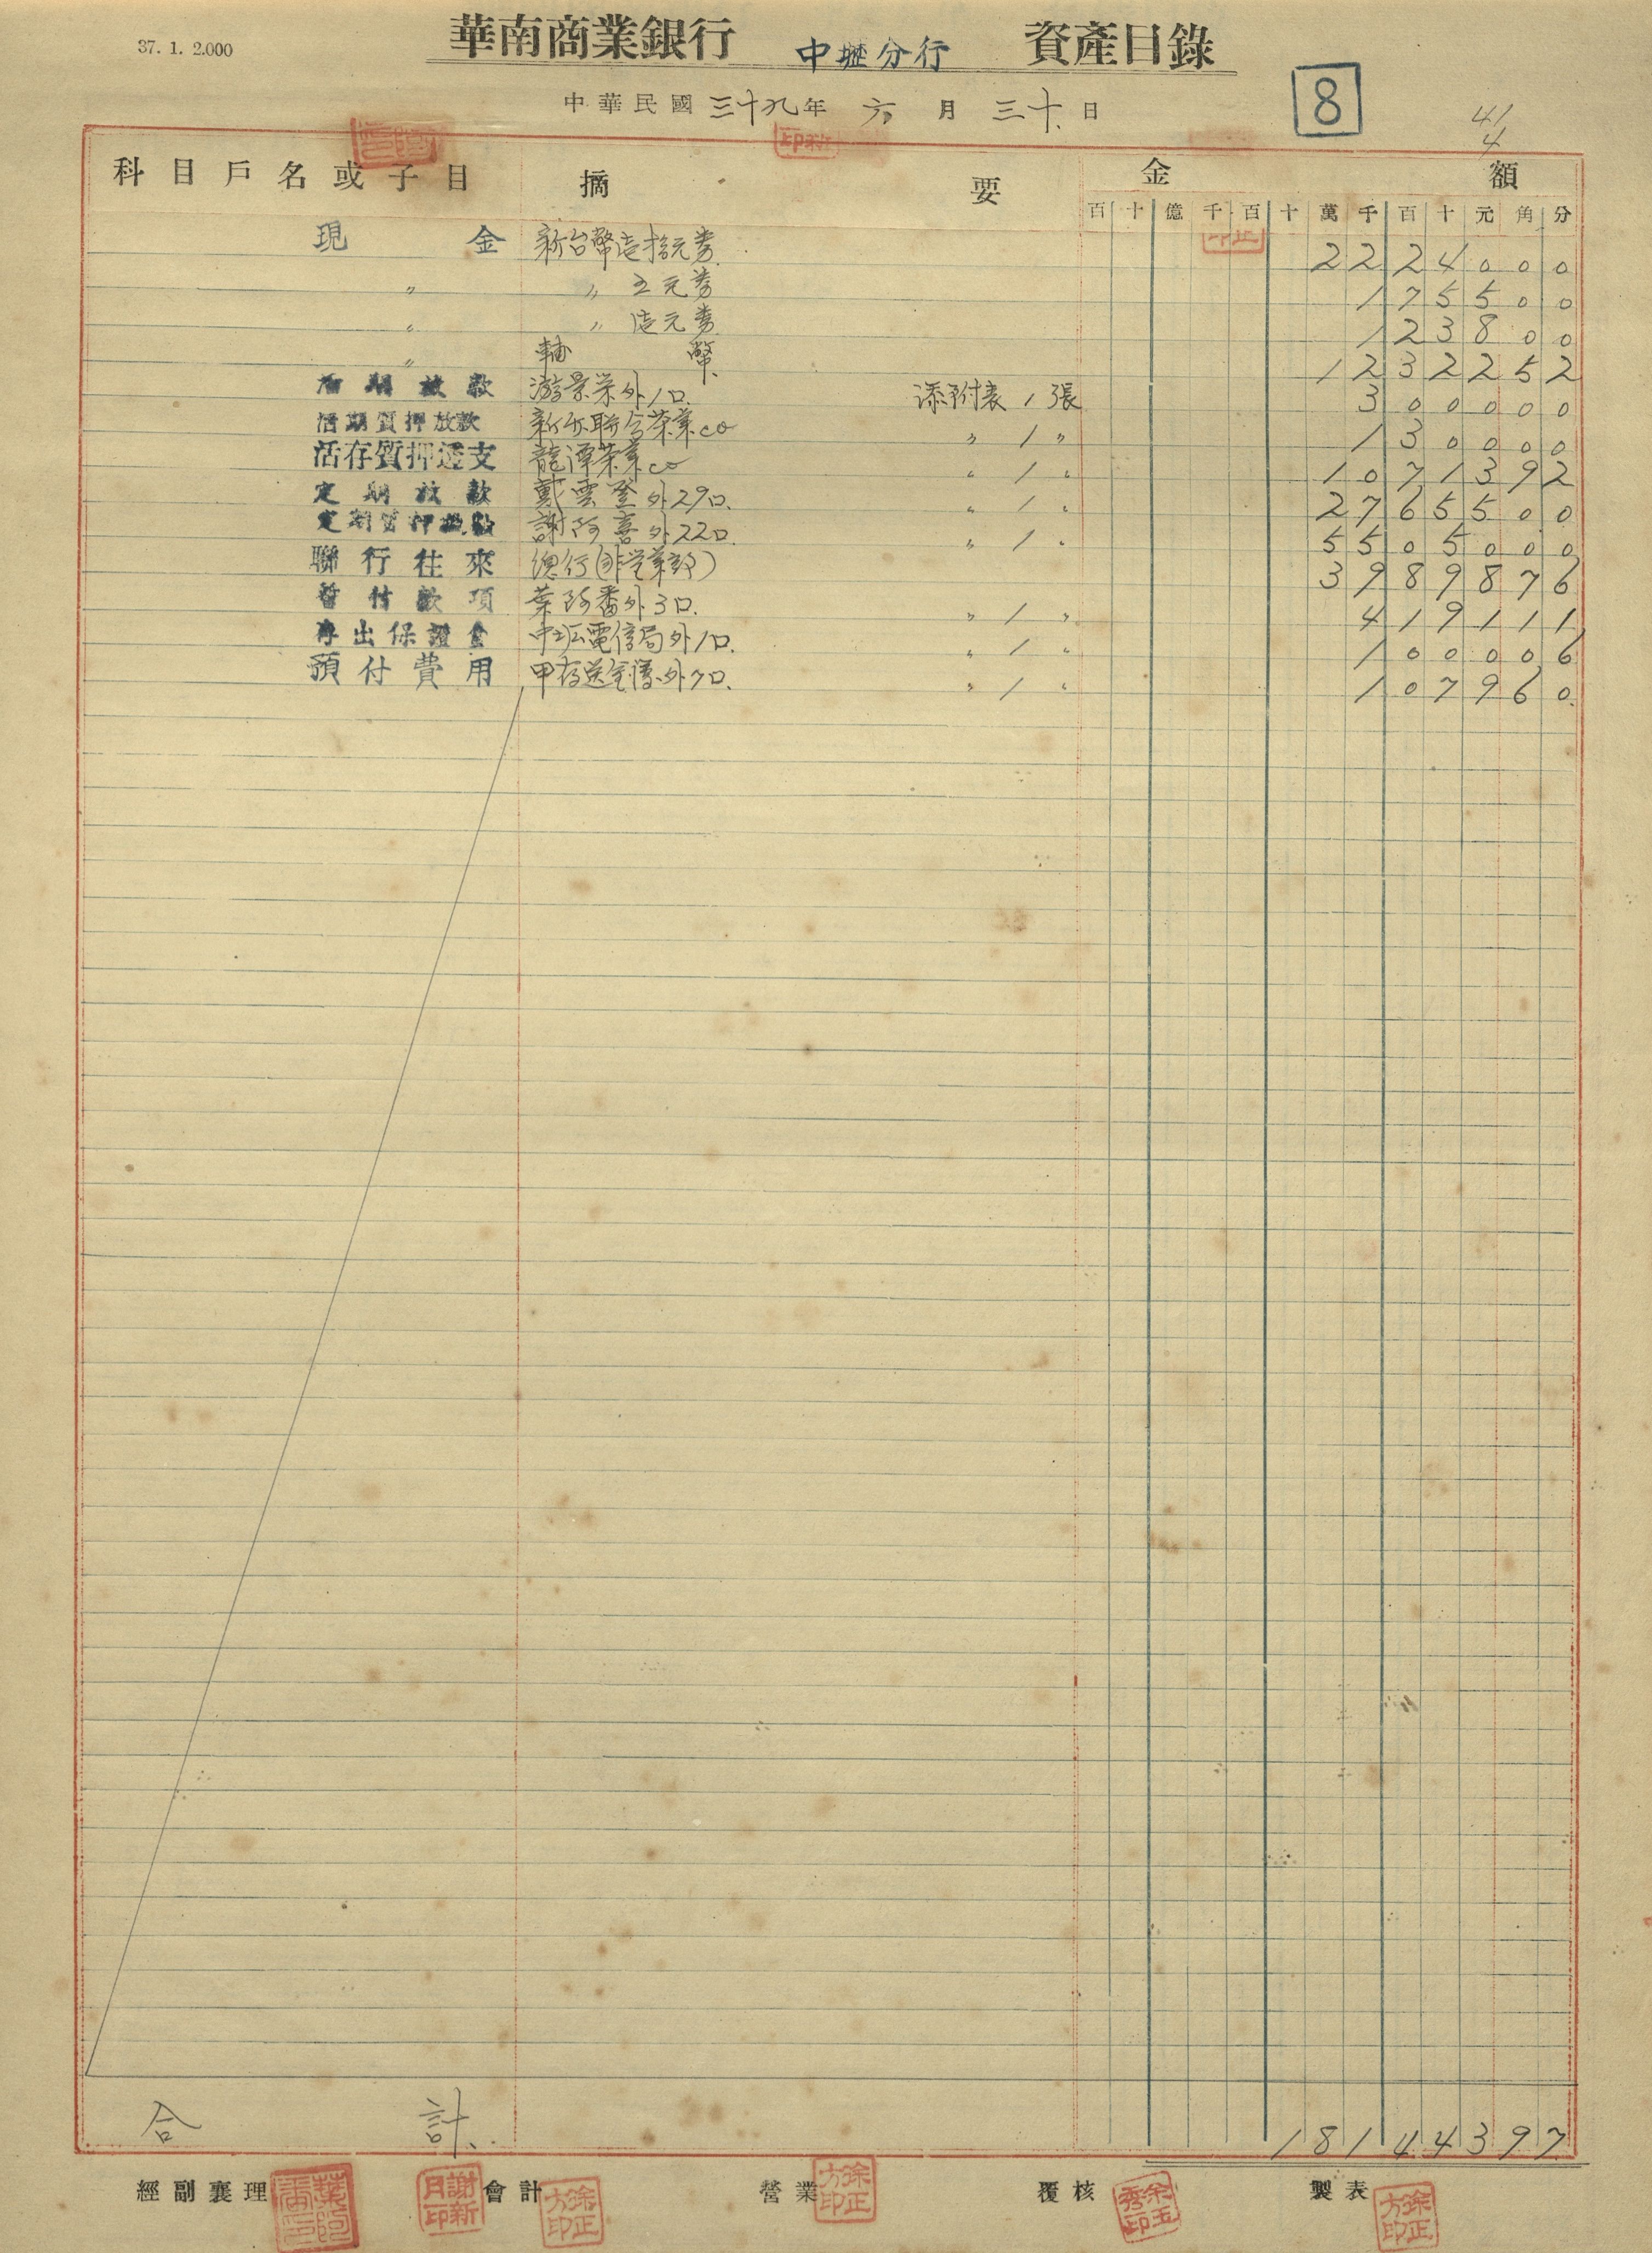 37. 1. 2.000
華南商業銀行 中壢分行 資產目錄
中華民國三十九年 六 月 三十 日
8
41
4
科目戶名或子目 摘 要 金 額
百 十 億 千 百 十 萬 千 百 十 元 角 分
現 金 新台幣壱拾元券 2 2 2 4 0 0 0
〃 〃 五元券 1 7 5 5 0 0
〃 〃 壱元券 1 2 3 8 0 0
〃 輔 幣 1 2 3 2 2 5 2
活期放款 游景栄外1口 添附表 1 張 3 0 0 0 0 0
活期質押放款 新竹聯合茶業co 〃 1 〃 1 3 0 0 0 0
活存質押透支 龍潭茶業co 〃 1 〃 1 0 7 1 3 9 2
定期放款 戴雲登外29口. 〃 1 〃 2 7 6 5 5 0 0
定期質押放款 謝阿喜外22口. 〃 1 〃 5 5 0 5 0 0 0
聯行往來 總行(非営業部) 3 9 8 9 8 7 6
暫付款項 葉阿番外3口. 〃 1 〃 4 1 9 1 1 1
存出保證金 中坜電信局外1口. 〃 1 〃 1 0 0 0 0 6
預付費用 甲存送金簿外7口. 〃 1 〃 1 0 7 9 6 0
合 計 1 8 1 4 4 3 9 7
經副襄理 謝新月印 會計 徐正方印 營業 徐正方印 覆核 余玉秀印 製表 徐正方印